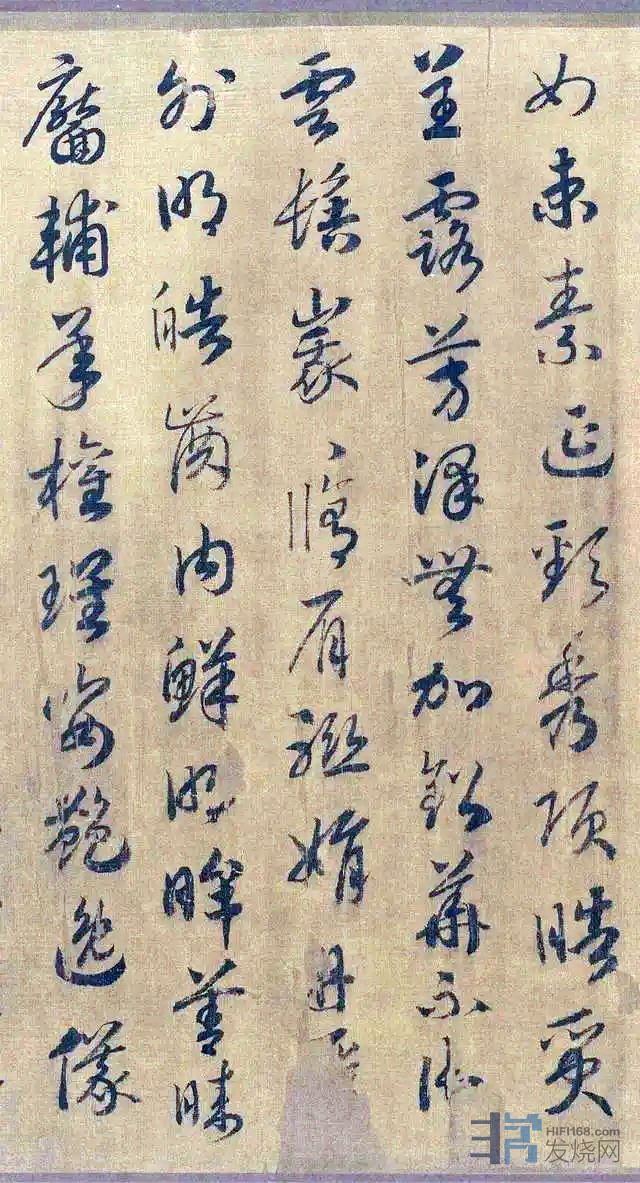 如束素延頸秀項晧質
呈露芳澤無加鉛華不御
雲髻峩〻脩眉聯娟丹
外朗皓齒內鮮明眸善睞
靨輔承權瓌姿艷逸儀
HIFI168.com
发烧网